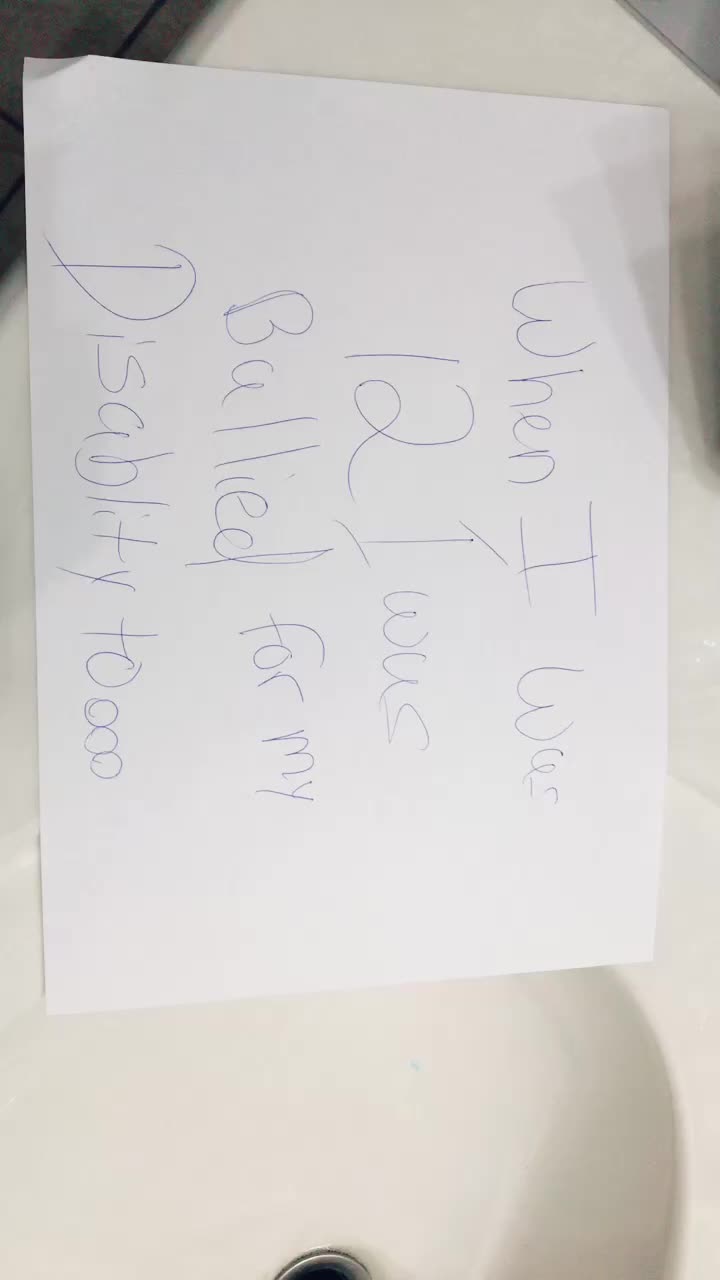 When I was
12 I was
Bullied for my
Disablity toooo